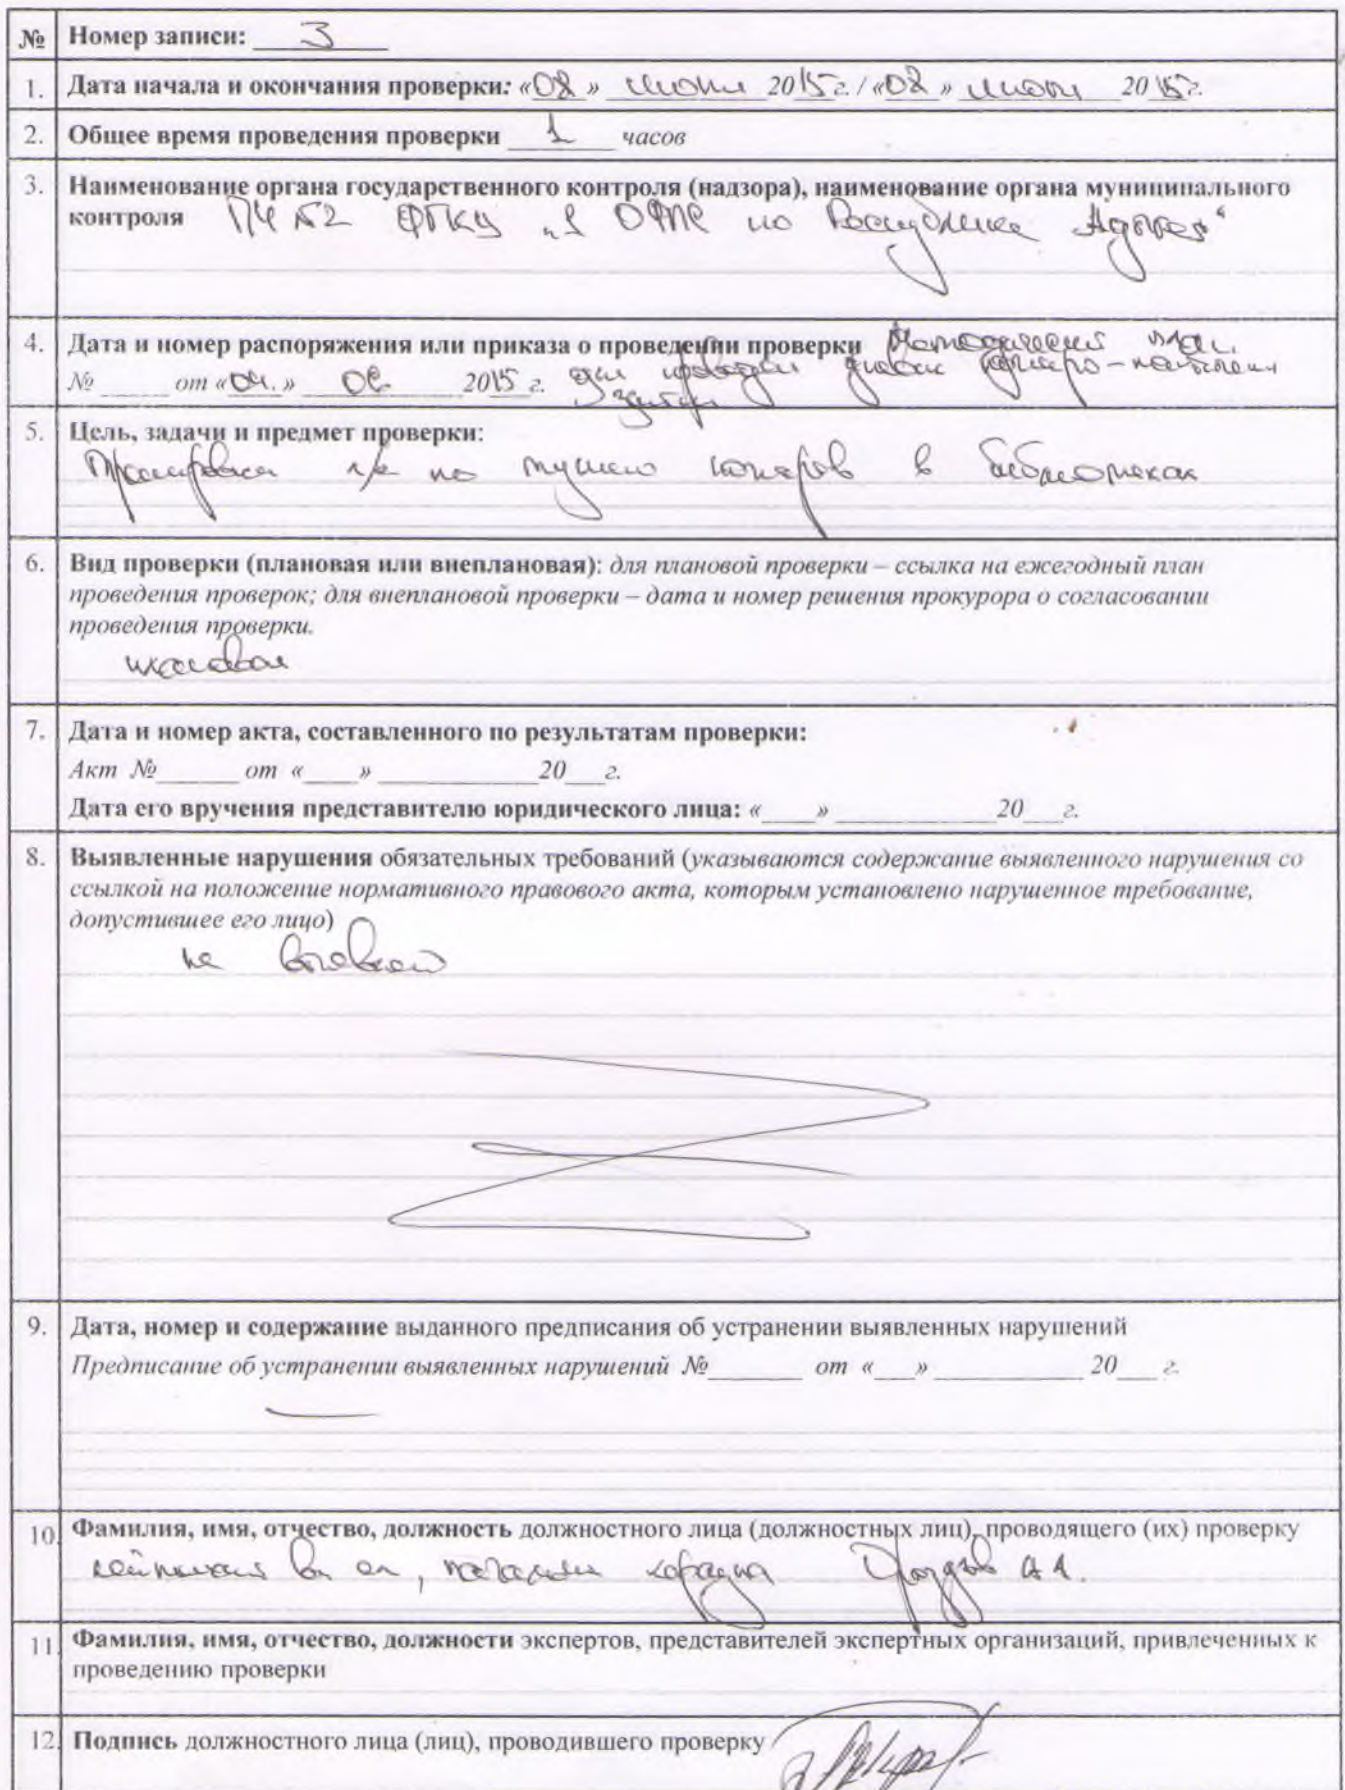 № Номер записи: 3
1. Дата начала и окончания проверки: «08» июня 2015г. / «08» июня 2015г.
2. Общее время проведения проверки 1 часов
3. Наименование органа государственного контроля (надзора), наименование органа муниципального
контроля ПЧ №2 ФГКУ „1 ОФПС по Республике Адыгея“
4. Дата и номер распоряжения или приказа о проведении проверки Методический план
№ ______ от «04.» 06 2015 г. для проведения
5. Цель, задачи и предмет проверки:
Тренировка л/с по тушению пожаров в библиотеках
6. Вид проверки (плановая или внеплановая): для плановой проверки – ссылка на ежегодный план
проведения проверок; для внеплановой проверки – дата и номер решения прокурора о согласовании
проведения проверки.
плановая
7. Дата и номер акта, составленного по результатам проверки:
Акт №______ от «____» ___________20___г.
Дата его вручения представителю юридического лица: «____» ____________20___г.
8. Выявленные нарушения обязательных требований (указываются содержание выявленного нарушения со
ссылкой на положение нормативного правового акта, которым установлено нарушенное требование,
допустившее его лицо)
не выявлено
9. Дата, номер и содержание выданного предписания об устранении выявленных нарушений
Предписание об устранении выявленных нарушений №_______ от «___» ___________ 20___ г.
10. Фамилия, имя, отчество, должность должностного лица (должностных лиц), проводящего (их) проверку
лейтенант вн сл, начальник караула
11. Фамилия, имя, отчество, должности экспертов, представителей экспертных организаций, привлеченных к
проведению проверки
12. Подпись должностного лица (лиц), проводившего проверку